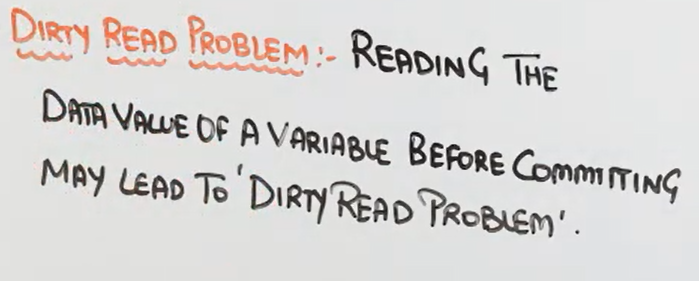 DIRTY READ PROBLEM:- READING THE
DATA VALUE OF A VARIABLE BEFORE COMMITTING
MAY LEAD TO 'DIRTY READ PROBLEM'.